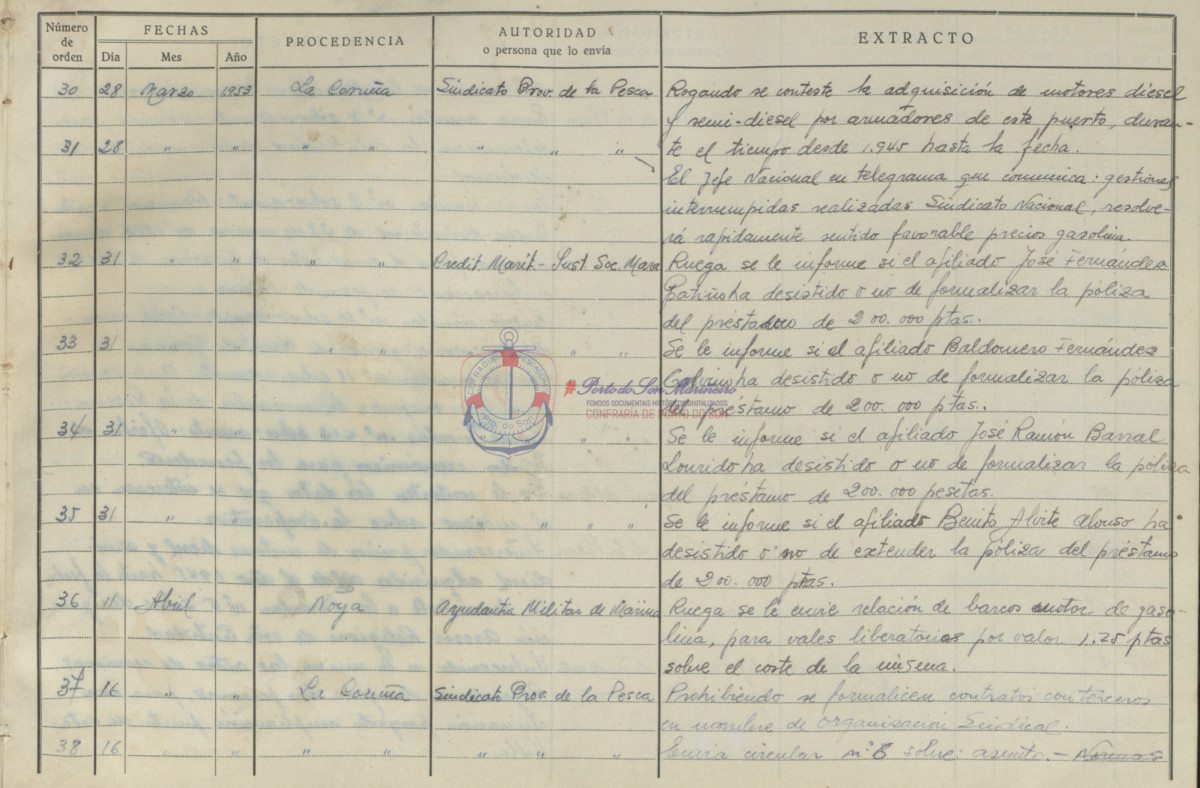 Número de orden FECHAS PROCEDENCIA AUTORIDAD o persona que lo envía EXTRACTO
Día Mes Año
30 28 Marzo 1953 La Coruña Sindicato Prov. de la Pesca Rogando se conteste la adquisición de motores diesel
y semi-diesel por armadores de este puerto, duran-
31 28 " " " " " " " te el tiempo desde 1.945 hasta la fecha.
El Jefe Nacional en telegrama que comunica: gestiones
interrumpidas realizadas Sindicato Nacional, resolve-
rá rapidamente sentido favorable precios gasolina.
32 31 " " " " Credit. Marit - Inst. Soc. Mara Ruega se le informe si el afiliado José Fernández
ha desistido o no de formalizar la póliza
del préstamo de 200.000 ptas.
33 31 " " " " Se le informe si el afiliado Baldomero Fernández
ha desistido o no de formalizar la póliza
del préstamo de 200.000 ptas.
34 31 " " " " Se le informe si el afiliado José Ramón Barral
Lourido ha desistido o no de formalizar la póliza
del préstamo de 200.000 pesetas.
35 31 " " " " " Se le informe si el afiliado Benito Alvite Alonso ha
desistido o no de extender la póliza del préstamo
de 200.000 ptas.
36 11 Abril " Noya Ayudantía Militar de Marina Ruega se le envie relación de barcos motor de gaso-
lina, para vales liberatorias por valor 1.25 ptas
sobre el coste de la misma.
37 16 " " La Coruña Sindicato Prov. de la Pesca Prohibiendo se formalicen contratos con terceros
en nombre de Organización Sindical.
38 16 " " " " " " " Envia circular nº 6 sobre: asunto.-
COFRADÍA
Pto. do Son
# Porto do Son Mariñeiro
CONFRARÍA DE PORTO DO SON